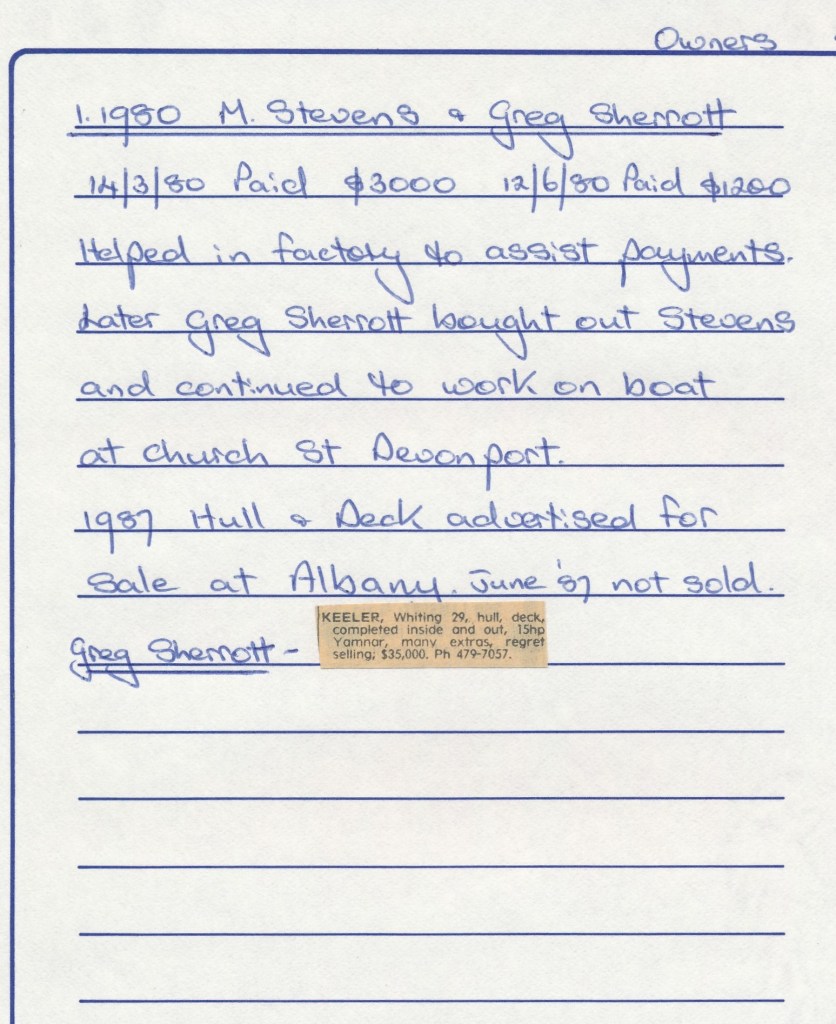 Owners
1. 1980 M. Stevens & Greg Sherrott
14/3/80 Paid $3000 12/6/80 Paid $1200
Helped in factory to assist payments.
Later Greg Sherrott bought out Stevens
and continued to work on boat
at Church St Devonport.
1987 Hull & Deck advertised for
sale at Albany. June '87 not sold.
Greg Sherrott -
KEELER, Whiting 29, hull, deck,
completed inside and out, 15hp
Yamnar, many extras, regret
selling; $35,000. Ph 479-7057.